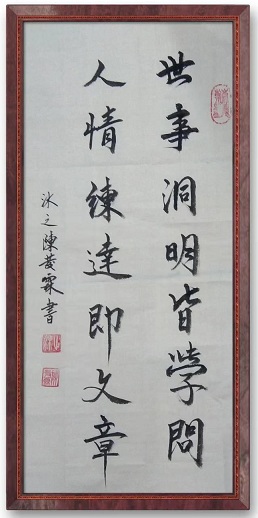 世事洞明皆學問
人情練達即文章
冰之陳蓤霖書